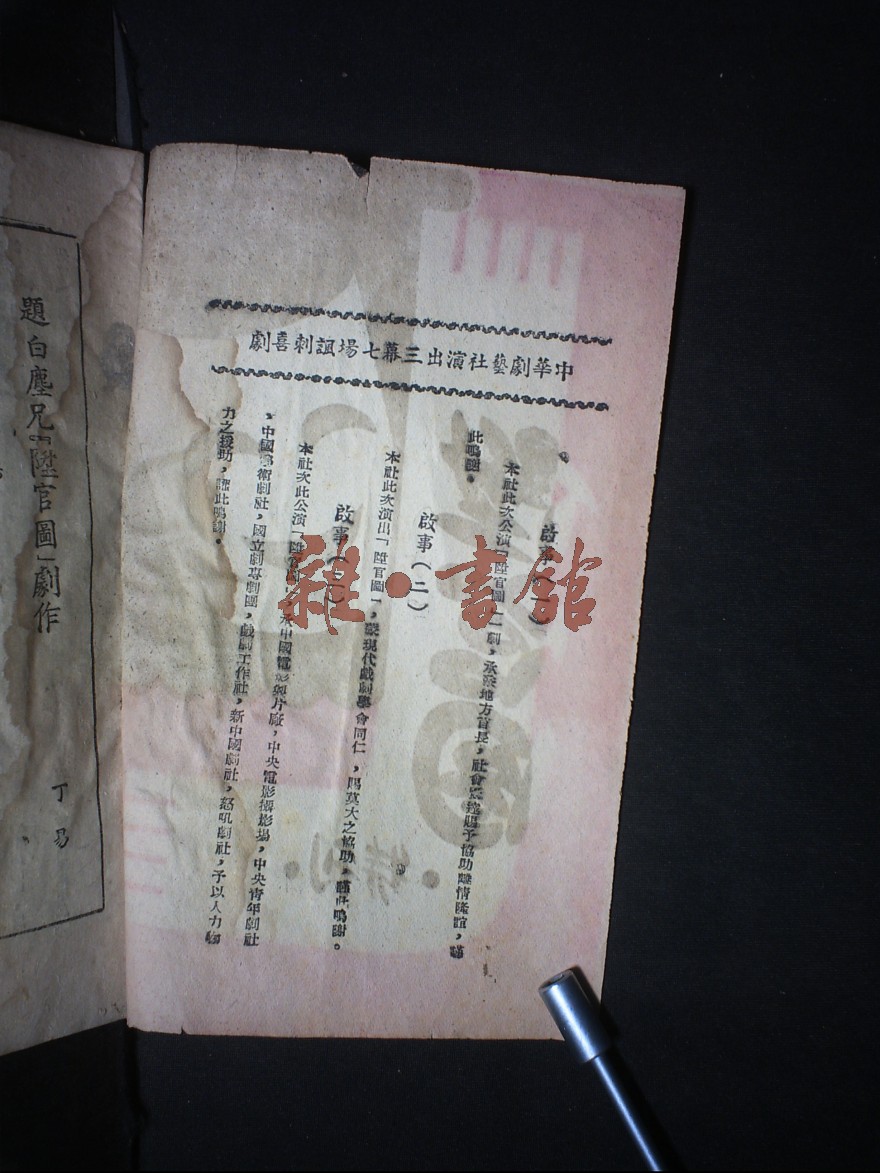 中華劇藝社演出三幕七場諷刺喜劇
啟事（一）
本社此次公演「陞官圖」一劇，承蒙地方首長，社會賢達賜予協助雲情隆誼，謹
此鳴謝。
啟事（二）
本社此次演出「陞官圖」，蒙現代戲劇學會同仁，賜莫大之協助，謹此鳴謝。
啟事（三）
本社次此公演「陞官圖」，承中國電影製片廠，中央電影攝影場，中央青年劇社
，中國藝術劇社，國立劇專劇團，戲劇工作社，新中國劇社，怒吼劇社，予以人力物
力之援助，謹此鳴謝。
題白塵兄「陞官圖」劇作
丁易
雜·書館
特刊